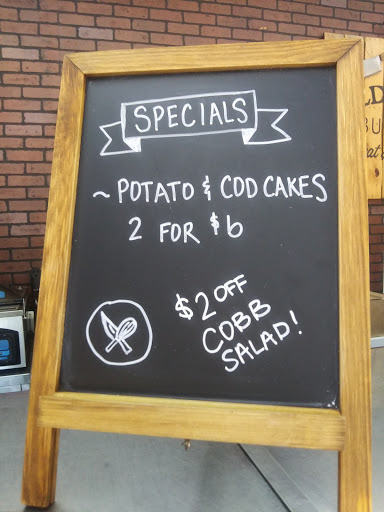 SPECIALS
~ POTATO & COD CAKES
2 FOR $6
$2 OFF
COBB
SALAD!